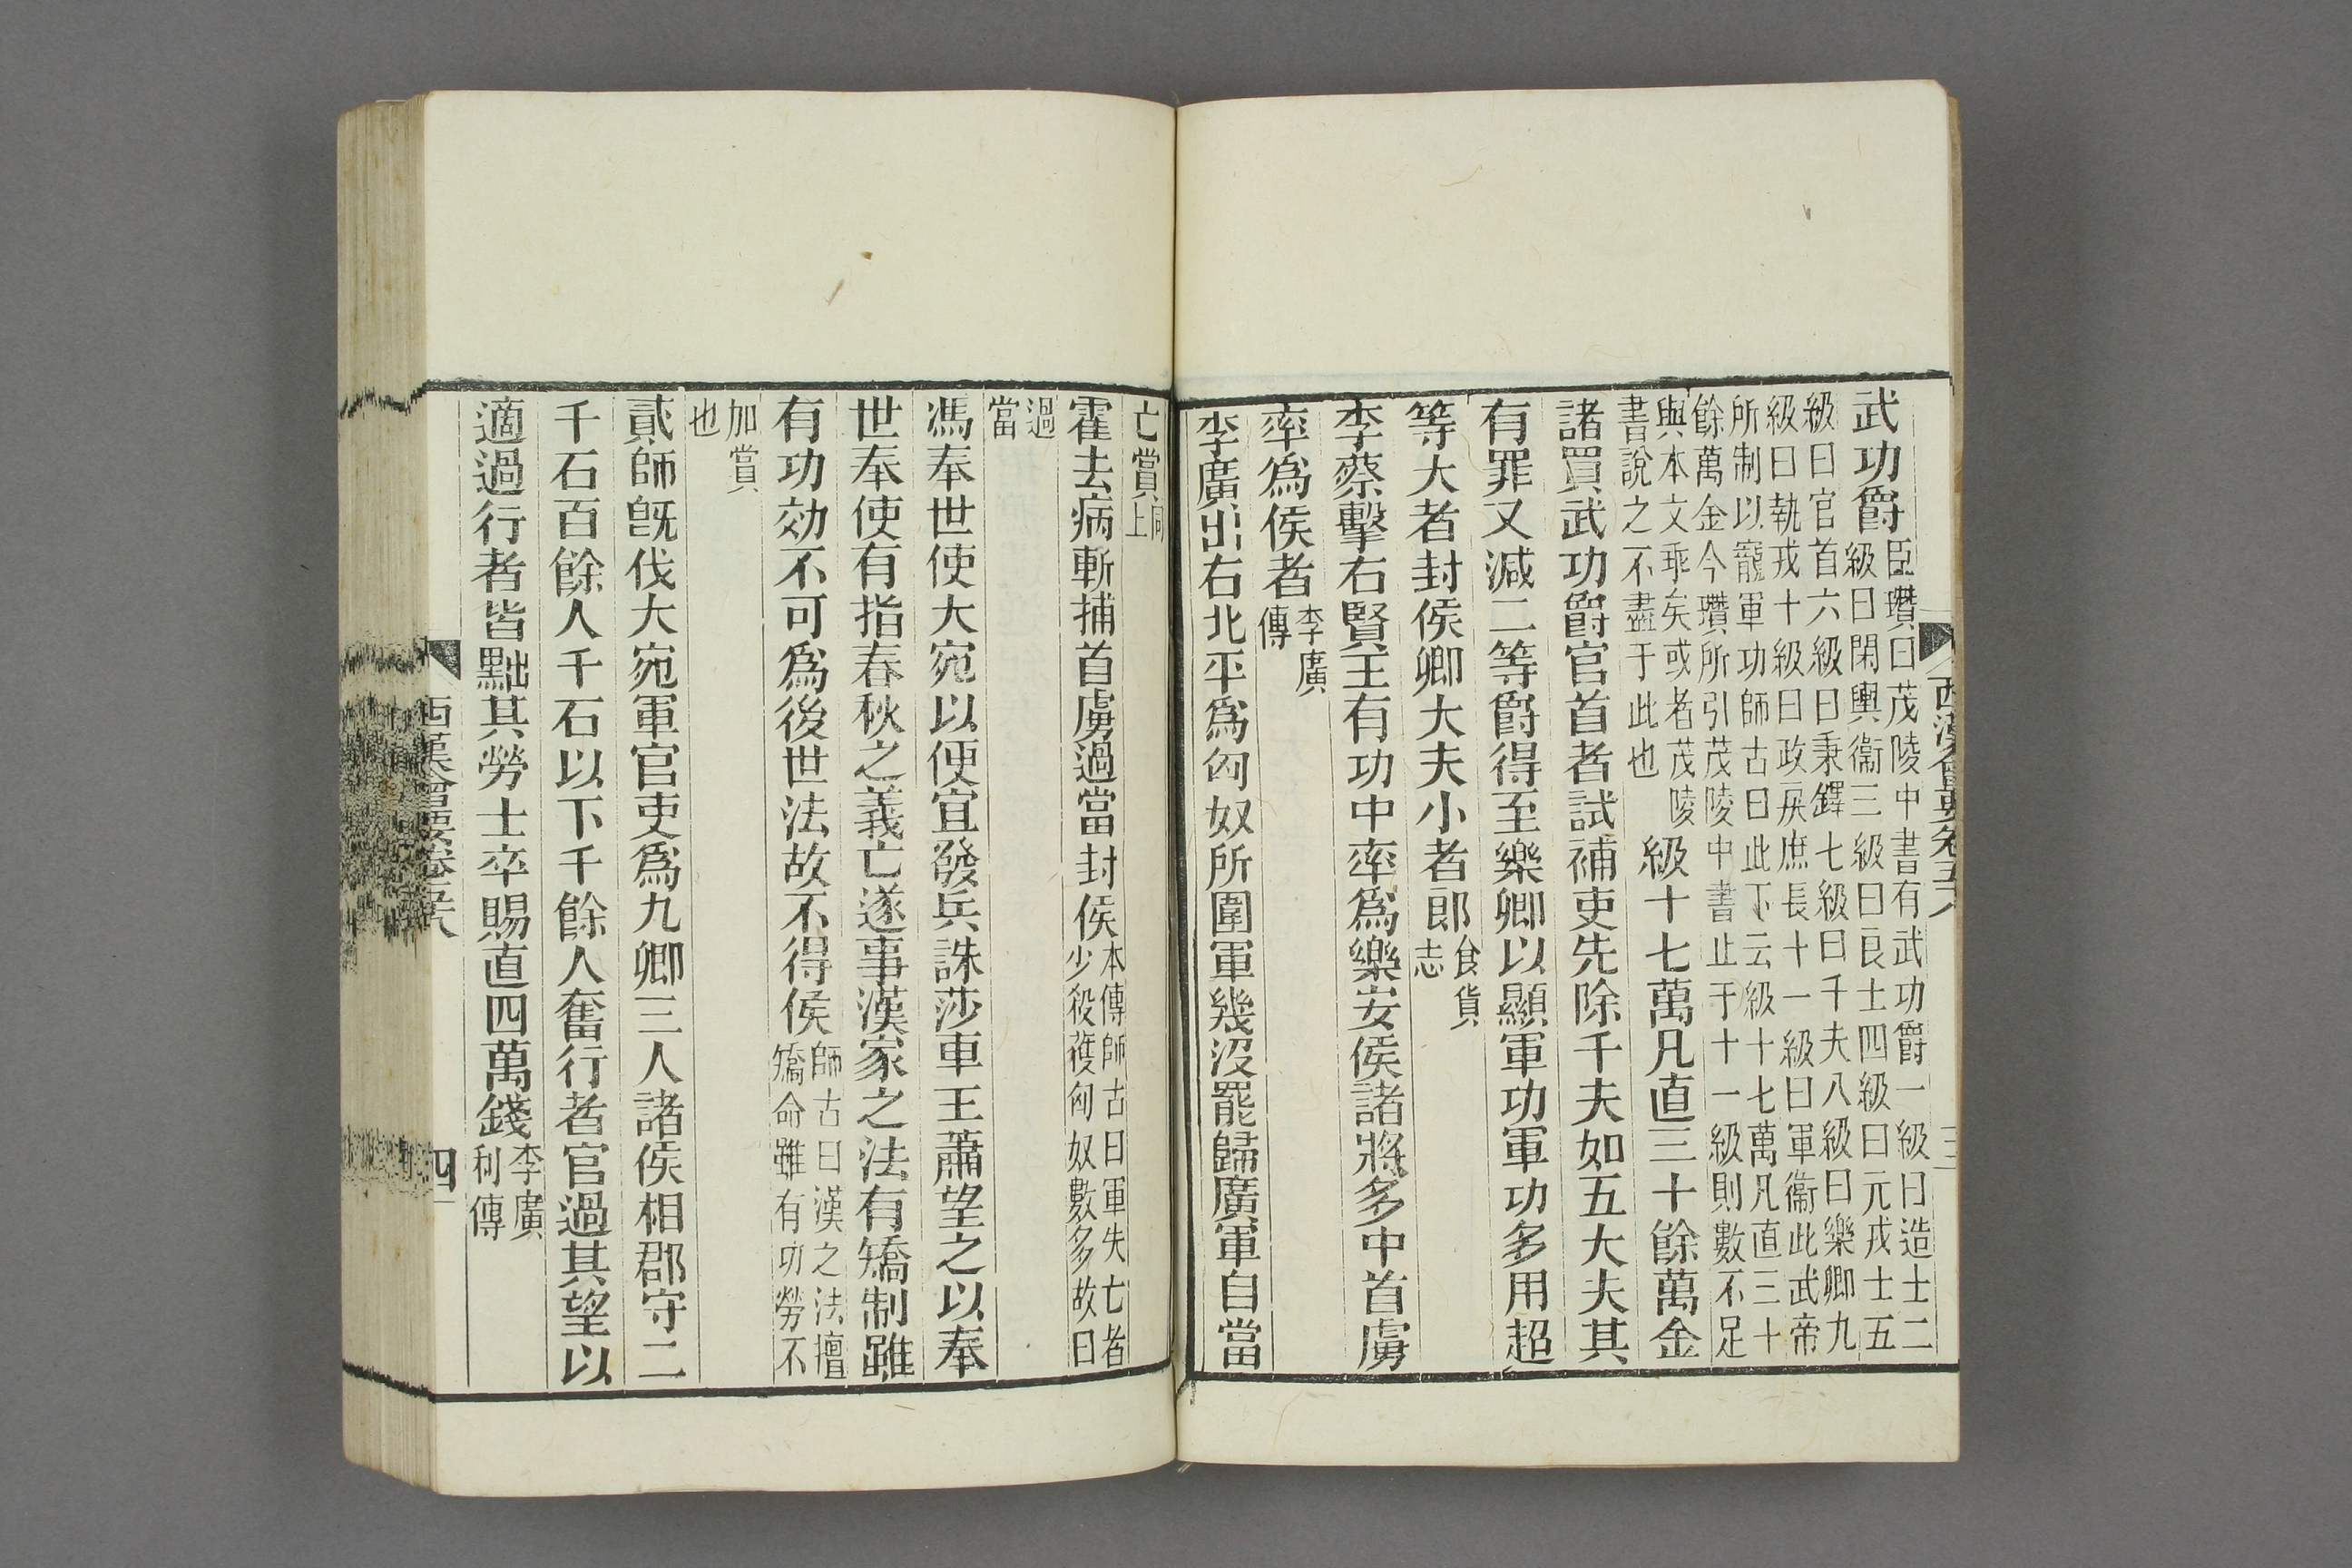 西漢會要卷五六
三
武功爵臣瓚曰茂陵中書有武功爵一級曰造士二
級曰閑輿衞三級曰良士四級曰元戎士五
級曰官首六級曰秉鐸七級曰千夫八級曰樂卿九
級曰執戎十級曰政戾庶長十一級曰軍衞此武帝
所制以寵軍功師古曰此下云級十七萬凡直三十
餘萬金今瓚所引茂陵中書止于十一級則數不足
與本文乖矣或者茂陵
書說之不盡于此也級十七萬凡直三十餘萬金
諸買武功爵官首者試補吏先除千夫如五大夫其
有罪又減二等爵得至樂卿以顯軍功軍功多用超
等大者封侯卿大夫小者郎食貨
志
李蔡擊右賢王有功中率爲樂安侯諸將多中首虜
率爲侯者李廣
傳
李廣出右北平爲匈奴所圍軍幾沒罷歸廣軍自當
亡賞同
上
霍去病斬捕首虜過當封侯本傳師古曰軍失亡者
少殺獲匈奴數多故曰
過
當
馮奉世使大宛以便宜發兵誅莎車王蕭望之以奉
世奉使有指春秋之義亡遂事漢家之法有矯制雖
有功効不可爲後世法故不得侯師古曰漢之法擅
矯命雖有功勞不
加賞
也
貳師旣伐大宛軍官吏爲九卿三人諸侯相郡守二
千石百餘人千石以下千餘人奮行者官過其望以
適過行者皆黜其勞士卒賜直四萬錢李廣
利傳
西漢會要卷五六
四